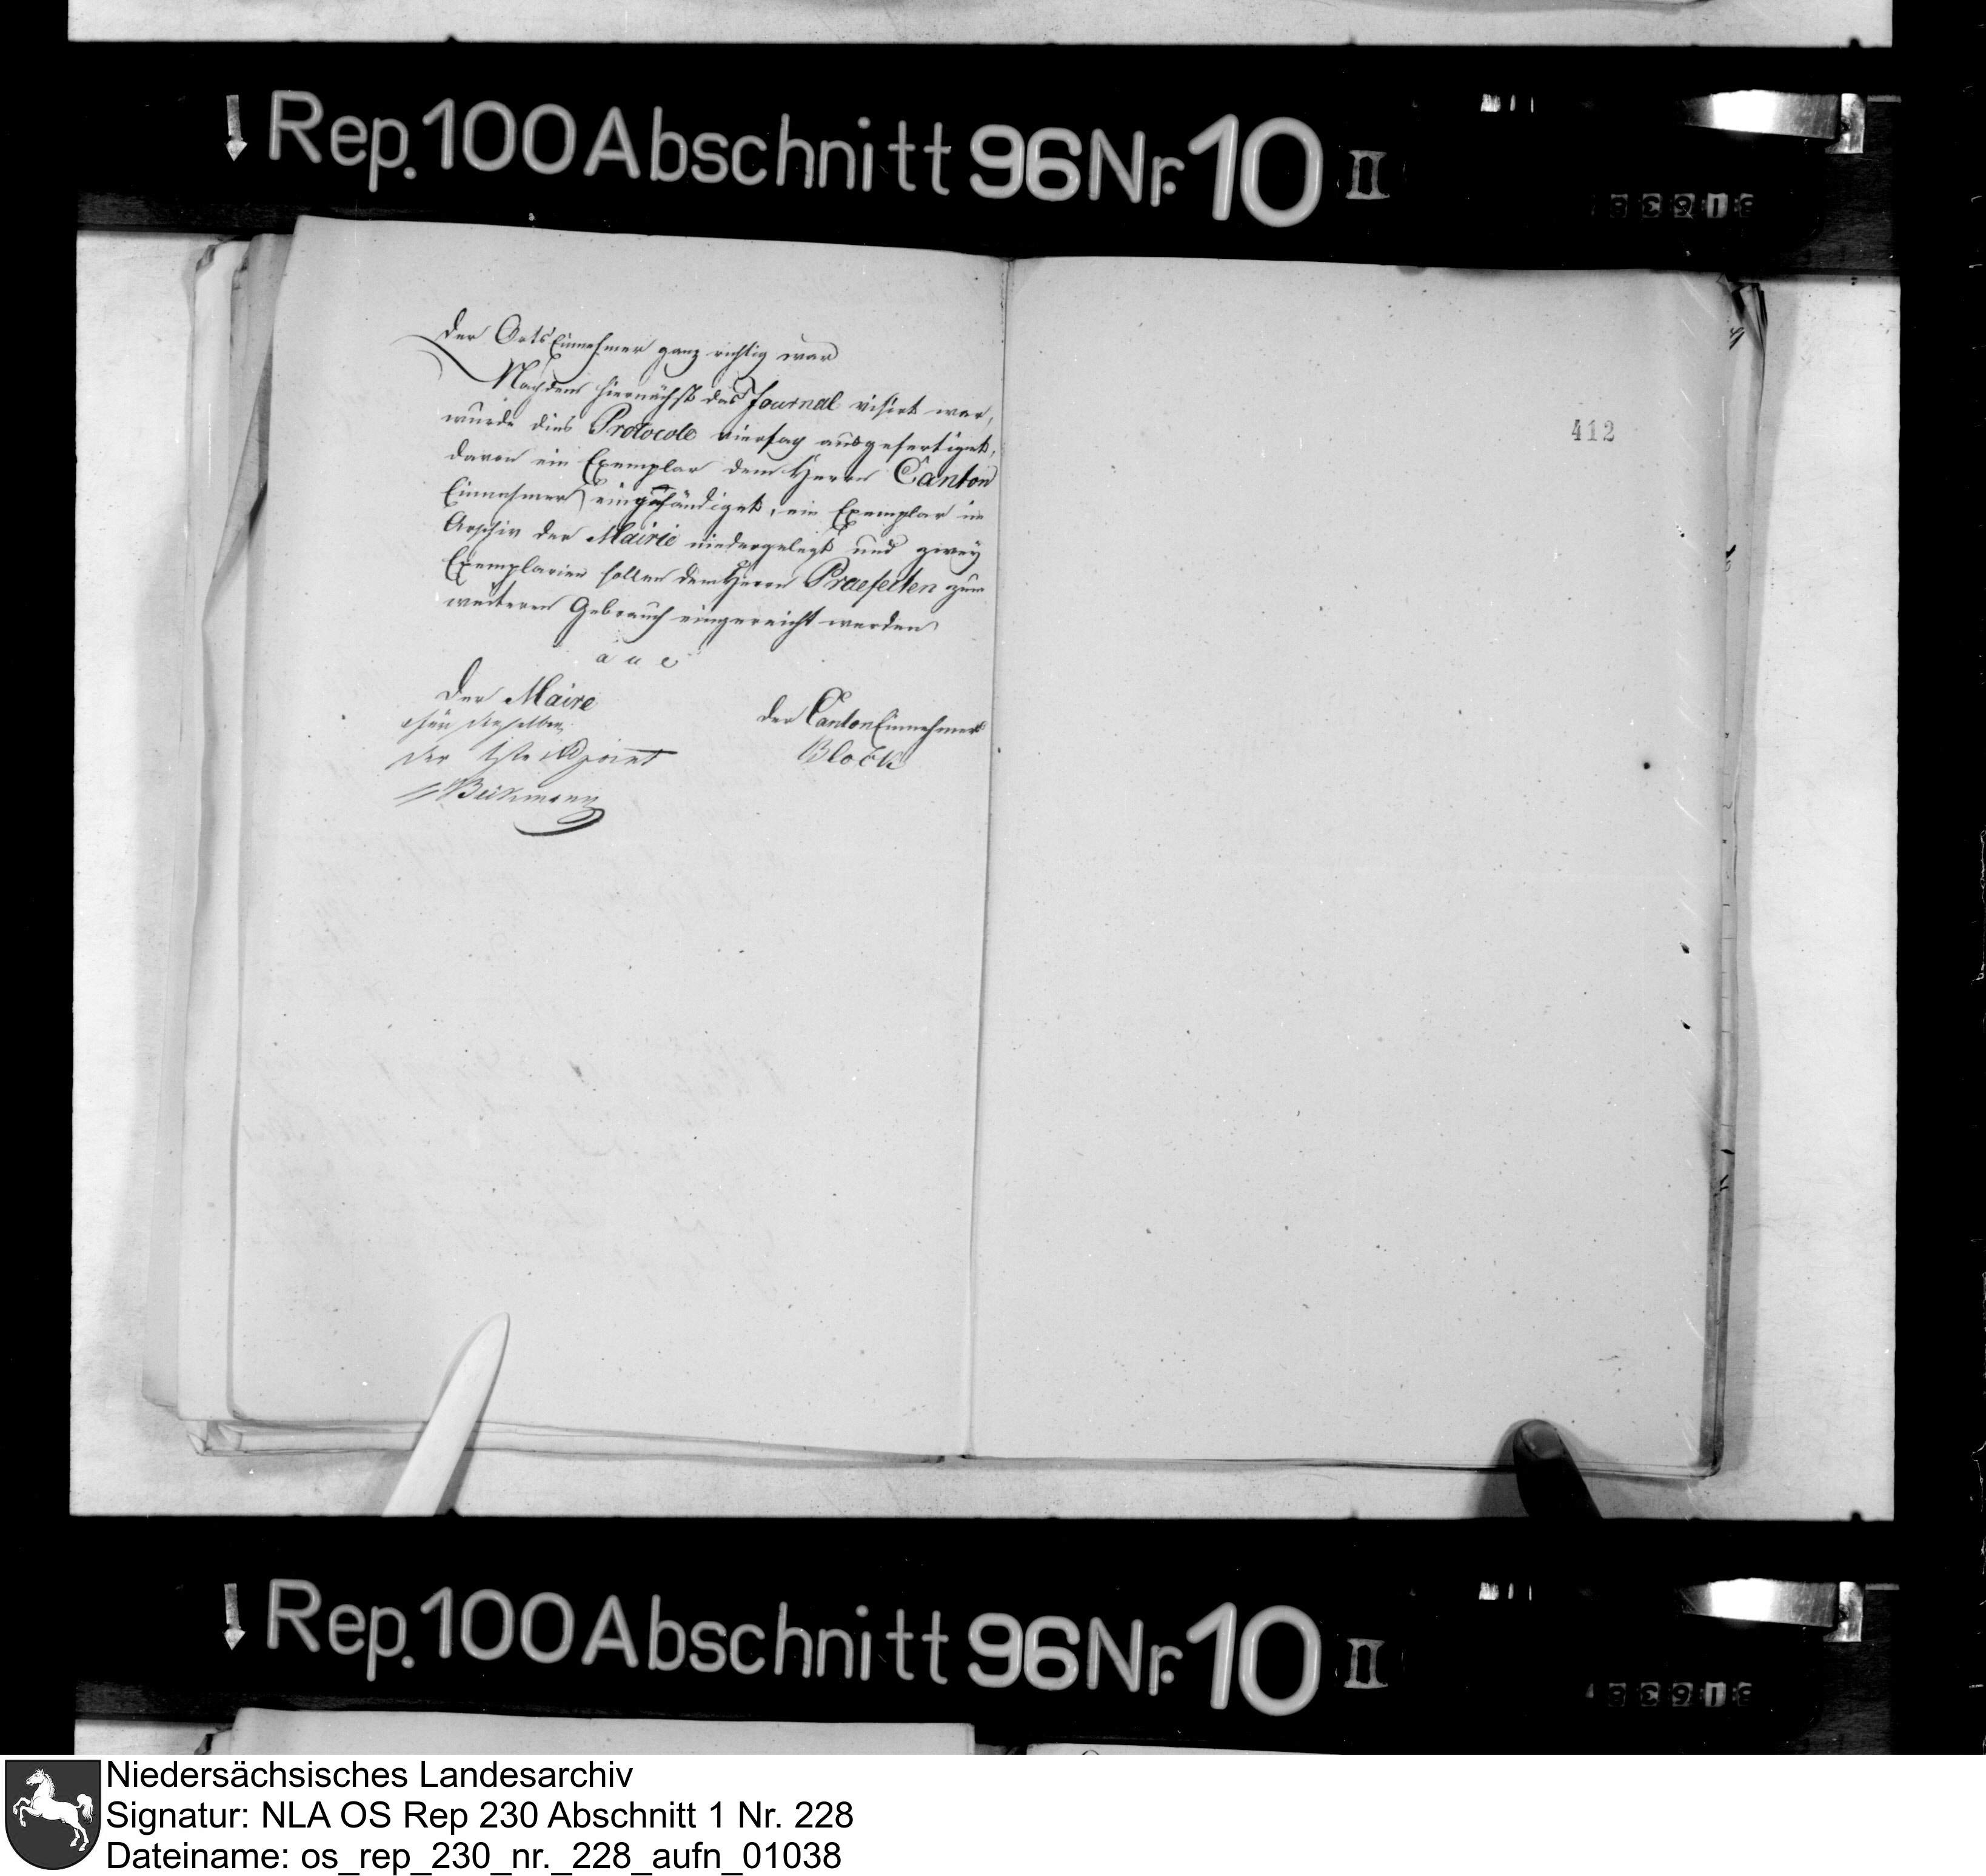 Rep. 100 Abschnitt 96 Nr. 10 II
der OrtsEinnehmer ganz richtig war
Nachdem hiernächst das Journal visirt war,
wurde dies Protocole vierfach ausgefertiget,
davon ein Exemplar dem Herrn Canton
Einnehmer eingehändiget, ein Exemplar im
Archiv der Mairie niedergelegt und zwey
Exemplarien sollen dem Herrn Praefecten zum
weiteren Gebrauch eingereicht werden
a u c
Der Maire
für denselben
der 1ste Adjoint
Beckmann
der CantonEinnehmer
Block
412
Rep. 100 Abschnitt 96 Nr. 10 II
Niedersächsisches Landesarchiv
Signatur: NLA OS Rep 230 Abschnitt 1 Nr. 228
Dateiname: os_rep_230_nr._228_aufn_01038